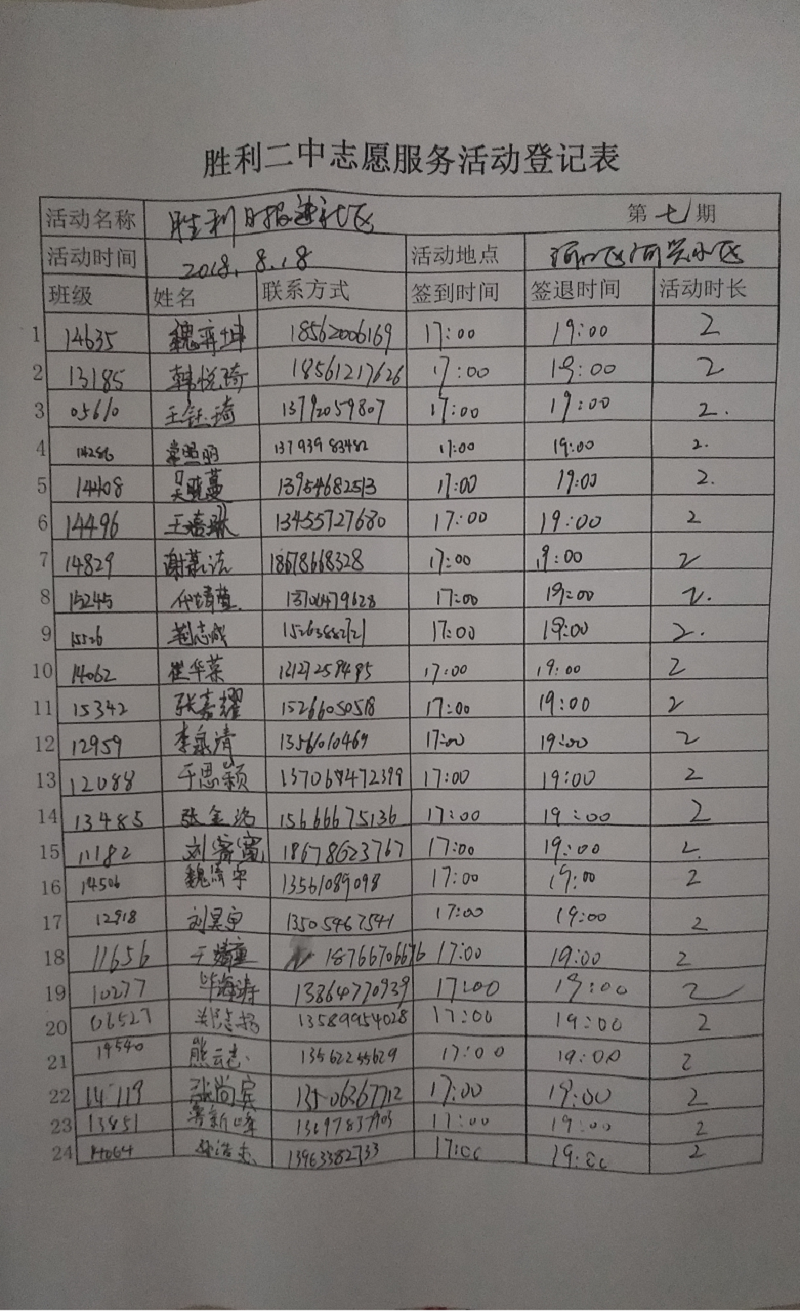 胜利二中志愿服务活动登记表
活动名称 胜利日报进社区 第七期
活动时间 2018.8.18 活动地点 河口区河兴小区
班级 姓名 联系方式 签到时间 签退时间 活动时长
1 14635 魏弈坤 18562006169 17:00 19:00 2
2 13185 韩悦琦 18561217626 17:00 19:00 2
3 05610 王钰琦 13792059807 17:00 19:00 2.
4 14286 常照明 13793983482 17:00 19:00 2.
5 14408 吴晓蔓 13954682513 17:00 19:00 2.
6 14496 13455727680 17:00 19:00 2
7 14829 18678668328 17:00 19:00 2
8 15245 17:00 19:00 2.
9 15526 志成 17:00 19:00 2.
10 14062 崔华荣 17:00 19:00 2
11 15342 张嘉耀 15266050518 17:00 19:00 2
12 12959 17:00 19:00 2
13 12088 于思颖 137068472399 17:00 19:00 2
14 13485 张金 15666675136 17:00 19:00 2
15 11182 刘 18678623767 17:00 19:00 2
16 14506 13561089098 17:00 19:00 2
17 12918 刘昊宇 13505467541 17:00 19:00 2
18 11656 18766706676 17:00 19:00 2
19 10277 毕海涛 13864770939 17:00 19:00 2
20 06527 13589954028 17:00 19:00 2
21 14540 熊云志 13562245629 17:00 19:00 2
22 14119 张尚宾 13506367712 17:00 19:00 2
23 13851 新峰 17:00 19:00 2
24 14064 浩志 13963382733 17:00 19:00 2